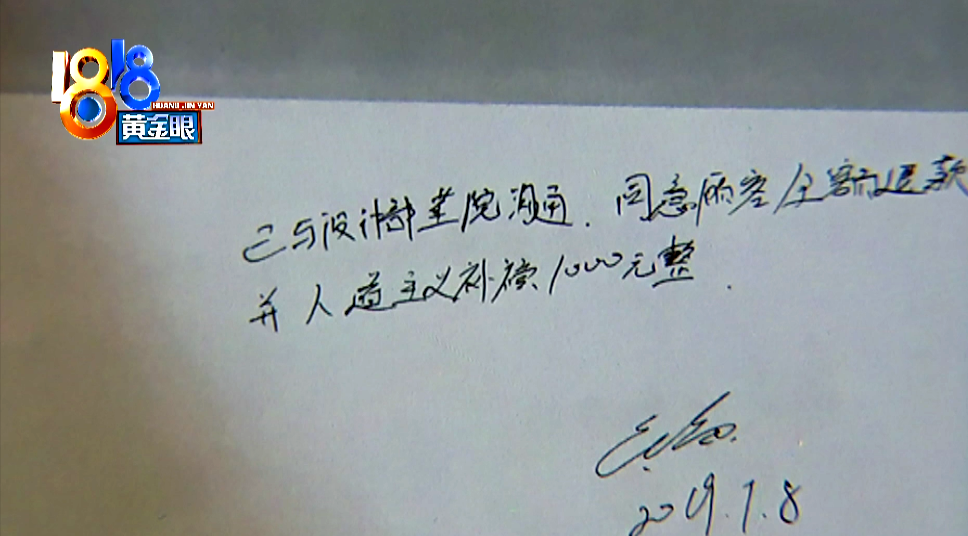 1818
HUANG JIN YAN
黄金眼
已与设计部 院沟通、同意顾客全额退款
并人道主义补偿1000元整.
2019.7.8